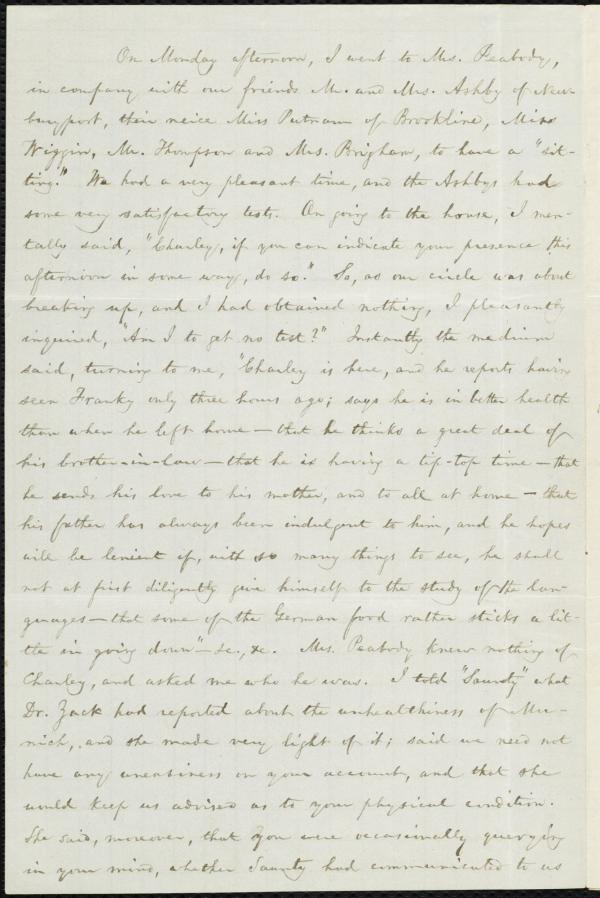 On Monday afternoon, I went to Mrs. Peabody,
in company with our friends Mr. and Mrs. Ashby of New-
buryport, their neice Miss Putnam of Brookline, Miss
Wiggin, Mr. Thompson and Mrs. Brigham, to have a "sit-
ting." We had a very pleasant time, and the Ashbys had
some very satisfactory tests. On going to the house, I men-
tally said, "Charley, if you can indicate your presence this
afternoon in some way, do so." So, as our circle was about
breaking up, and I had obtained nothing, I pleasantly
inquired, "Am I to get no test?" Instantly the medium
said, turning to me, "Charley is here, and he reports having
seen Franky only three hours ago; says he is in better health
than when he left home — that he thinks a great deal of
his brother-in-law — that he is having a tip-top time — that
he sends his love to his mother, and to all at home — that
his father has always been indulgent to him, and he hopes
will be lenient if, with so many things to see, he shall
not at first diligently give himself to the study of the lan-
guages — that some of the German food rather sticks a lit-
tle in going down" — &c., &c. Mrs. Peabody knew nothing of
Charley, and asked me who he was. I told "Saunty" what
Dr. Zack had reported about the unhealthiness of Mu-
nich, and she made very light of it; said we need not
have any uneasiness on your account, and that she
would keep us advised as to your physical condition.
She said, moreover, that you were occasionally querying
in your mind, whether Saunty had communicated to us